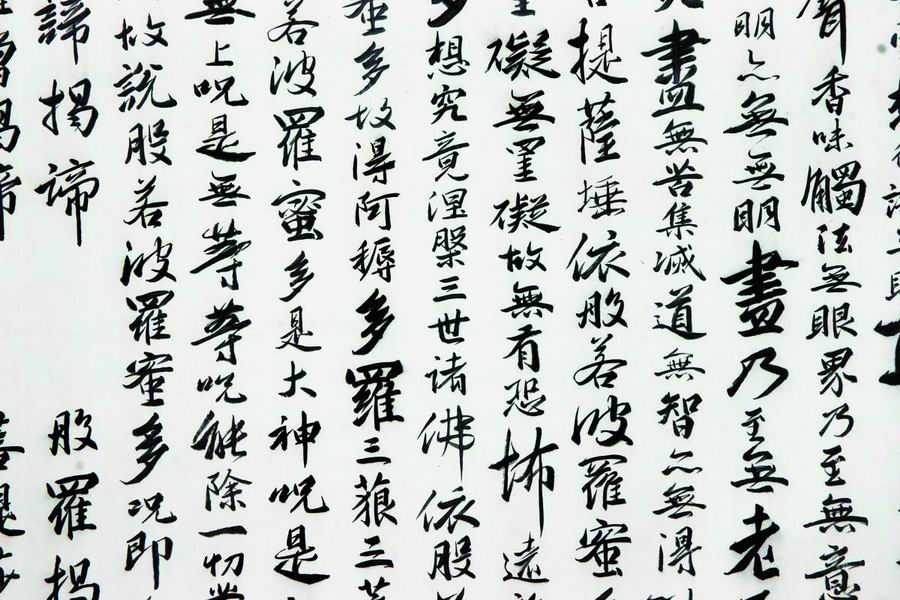 聲香味觸法無眼界乃至無意
明亦無無明盡乃至無老
盡無苦集滅道無智亦無得
提薩埵依般若波羅蜜
礙無罣礙故無有恐怖遠
多想究竟涅槃三世諸佛依般
蜜多故得阿耨多羅三藐三菩
若波羅蜜多是大神呪是
無上呪是無等等呪能除一切
故說般若波羅蜜多呪即
諦揭諦 般羅揭